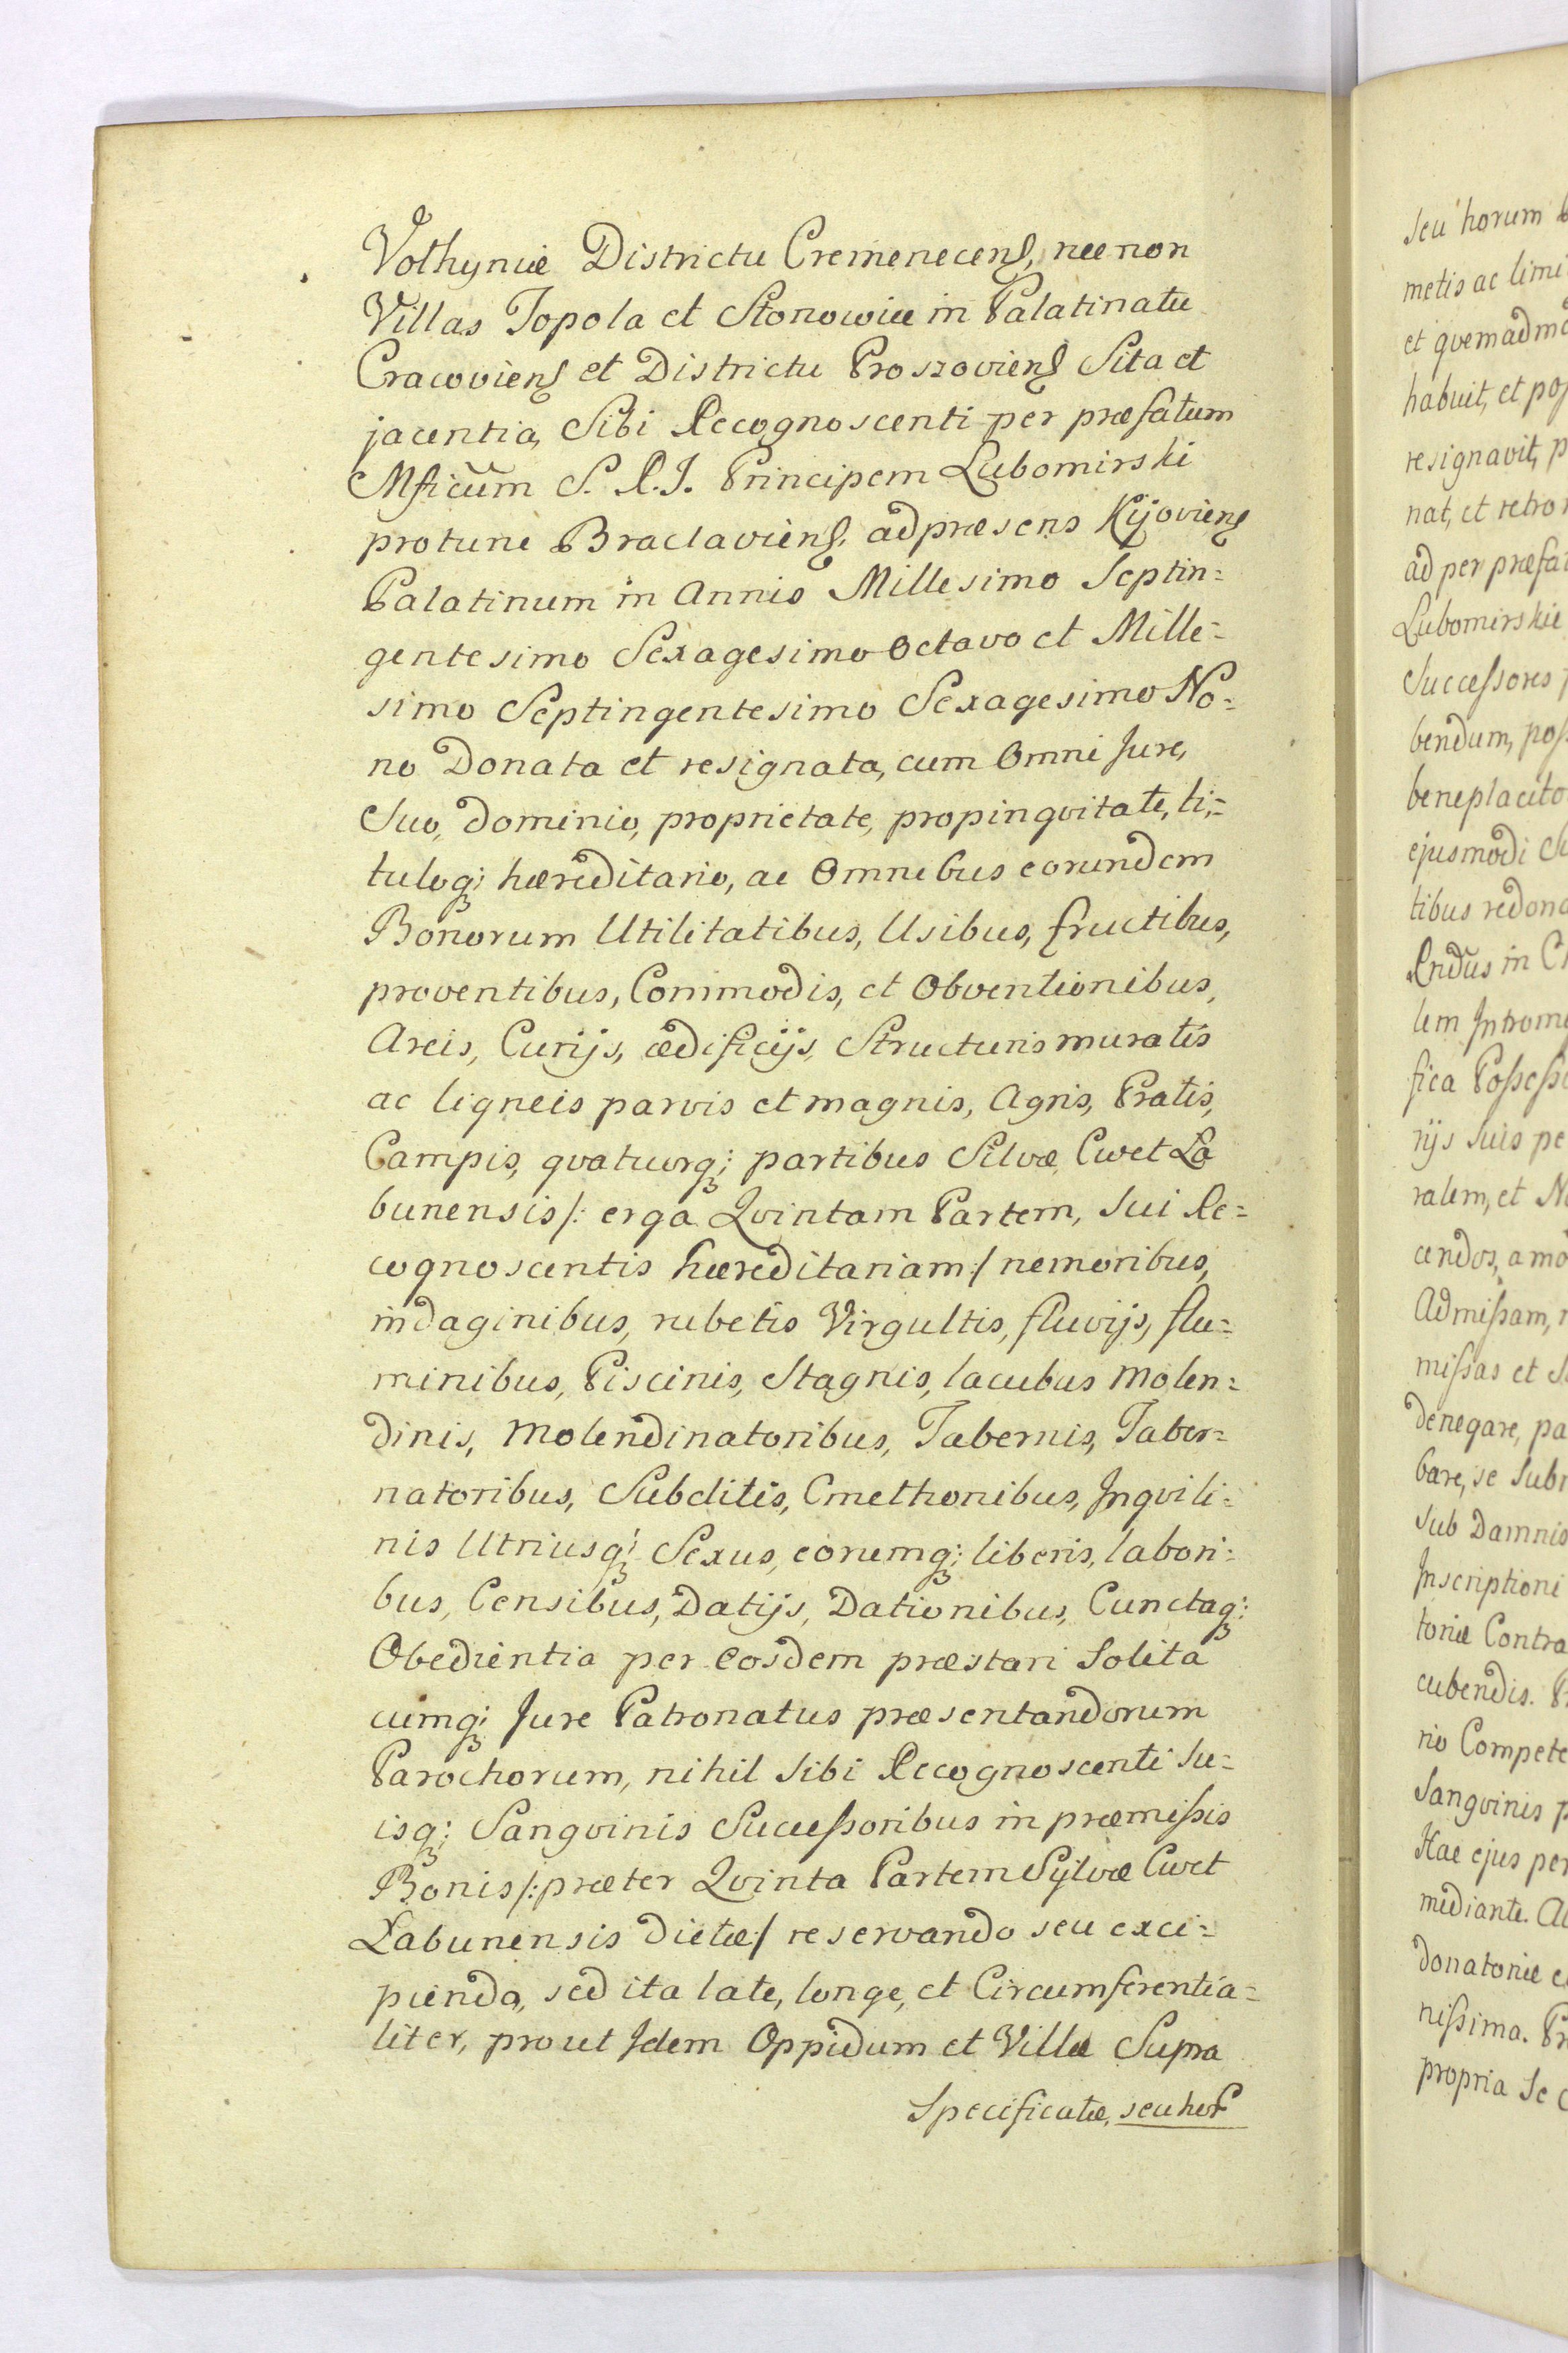 Volhyniæ Districtu Cremenecens, nec non
Villas Topola et Stonowice in Palatinatu
Cracoviens et Districtu Proszoviens Sita et
jacentia, Sibi Recognoscenti per præfatum
Mficum S. R. I. Principem Lubomirski
protunc Braclaviens, ad præsens Kijoviens
Palatinum in Annis Millesimo Septin=
gentesimo Sexagesimo Octavo et Mille=
simo Septingentesimo Sexagesimo No=
no Donata et resignata, cum Omni Jure,
Suo, dominio, proprietate, propinqvitate, ti=
tuloq; hæreditario, ac Omnibus eorundem
Bonorum Utilitatibus, Usibus, fructibus,
proventibus, Commodis, et Obventionibus,
Areis, Curijs, ædificijs, Structuris muratis
ac ligneis parvis et magnis, Agris, Pratis,
Campis, qvatuorq; partibus Silvæ Cwet La
bunensis /: erga Qvintam Partem, Sui Re=
cognoscentis hæreditariam :/ nemoribus,
indaginibus, rubetis Virgultis, fluvijs, flu=
minibus, Piscinis, Stagnis, lacubus Molen=
dinis, Molendinatoribus, Tabernis, Taber=
natoribus, Subditis, Cmethonibus, Inqvili=
nis Utriusq; Sexus, eorumq; liberis, labori=
bus, Censibus, Datijs, Dationibus, Cunctaq;
Obedientia per Eosdem præstari Solita
cumq; Jure Patronatus præsentandorum
Parochorum, nihil Sibi Recognoscenti Su=
isq; Sangvinis Successoribus in præmissis
Bonis /: præter Qvinta Partem Sylvæ Cwet
Labunensis dictæ :/ reservando seu exci=
piendo, sed ita late, longe, et Circumferentia=
liter, prout Idem Oppidum et Villæ Supra
Specificatæ, seu hor
seu horum
metis ac limi
et qvemadmo
habuit, et pos
resignavit, p
nat, et retro
ad per præfa
Lubomirskie
Successores
bendum, pos
beneplacito
ejusmodi Su
tibus redona
Rndus in C
lem Introm
fica Possess
rijs Suis pe
ralem, et N
cendos, a mo
Admissam,
missas et S
denegare, pa
bare, se Sub
Sub Damnis
Inscriptioni
toriæ Contra
cubendis. P
rio Compete
Sangvinis p
Hac ejus per
mediante. Ac
donatoriæ e
nissima. Pr
propria Se